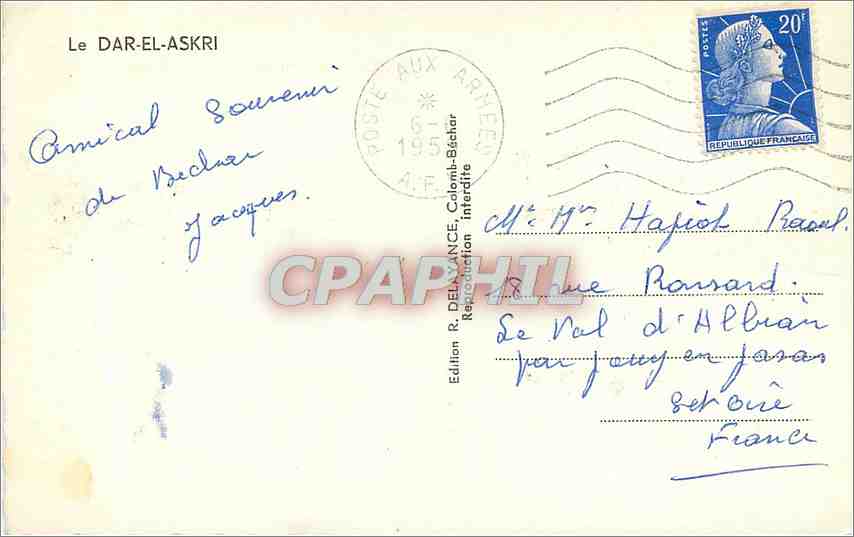 Le DAR-EL-ASKRI
Amical Souvenir
de Bechar
Jacques.
POSTE AUX ARMEES
6
195
A.F.
Edition R. DELAYANCE, Colomb-Béchar
Reproduction interdite
POSTES
20F
REPUBLIQUE FRANÇAISE
CPAPHIL
Mr Mme Hapiot Raoul.
18 rue Ronsard.
Le Val d'Albian
par Jouy en Josas
Set Oise
France